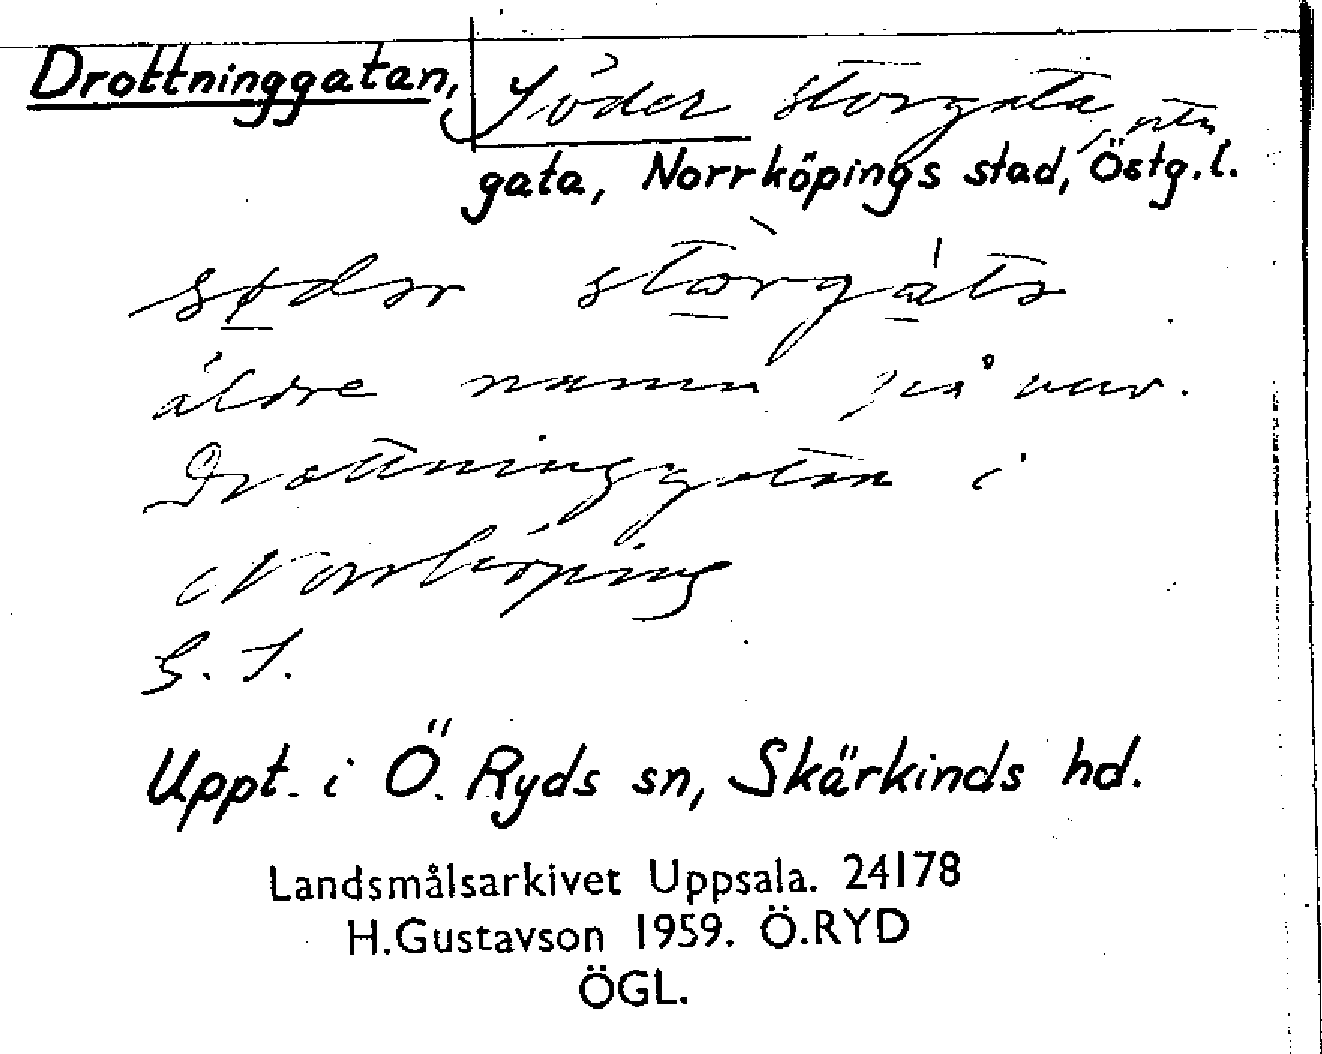 Drottninggatan, Söder storgata
gata, Norrköpings stad, Östg.l.
sødər storgàta
äldre namn på nuv.
Drottninggatan i
Norrköping
G. S.
Uppt. i Ö. Ryds sn, Skärkinds hd.
Landsmålsarkivet Uppsala. 24178
H.Gustavson 1959. Ö.RYD
ÖGL.